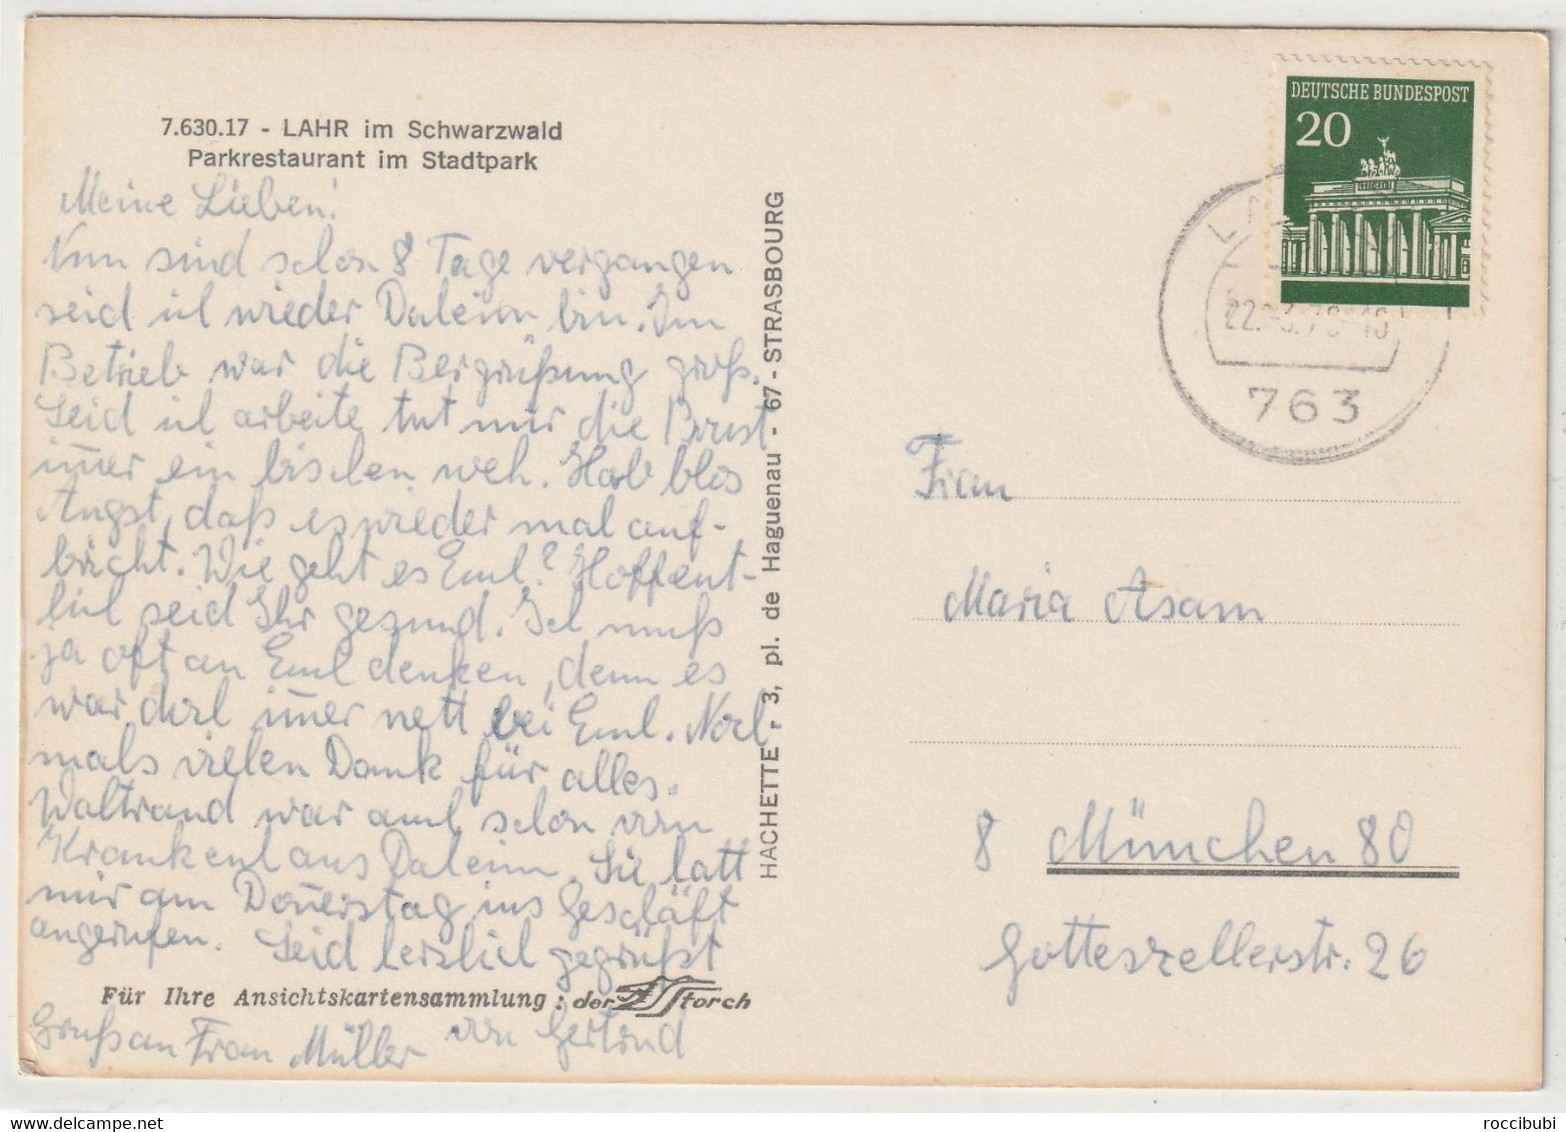 7.630.17 - LAHR im Schwarzwald
Parkrestaurant im Stadtpark
Meine Lieben!
Nun sind schon 8 Tage vergangen
seid ich wieder Daheim bin. Im
Betrieb war die Bergrüßung groß.
Seid ich arbeite tut mir die Brust
im̄er ein bischen weh. Hab blos
Angst, daß es wieder mal auf-
bricht. Wie geht es Euch? Hoffent-
lich seid Ihr gesund. Ich muß
ja oft an Euch denken, denn es
war doch im̄er nett bei Euch. Noch
mals vielen Dank für alles.
Waltraud war auch schon vom
Krankenhaus Daheim. Sie hatt
mir am Don̄erstag ins Geschäft
angerufen. Seid herzlich gegrüßt
Für Ihre Ansichtskartensammlung: der Storch
Gruß an Frau Müller von Gertrud
HACHETTE - 3, pl. de Haguenau - 67 - STRASBOURG
DEUTSCHE BUNDESPOST
20
763
Frau
Maria Asam
8 München 80
Gotteszellerstr. 26
roccibubi